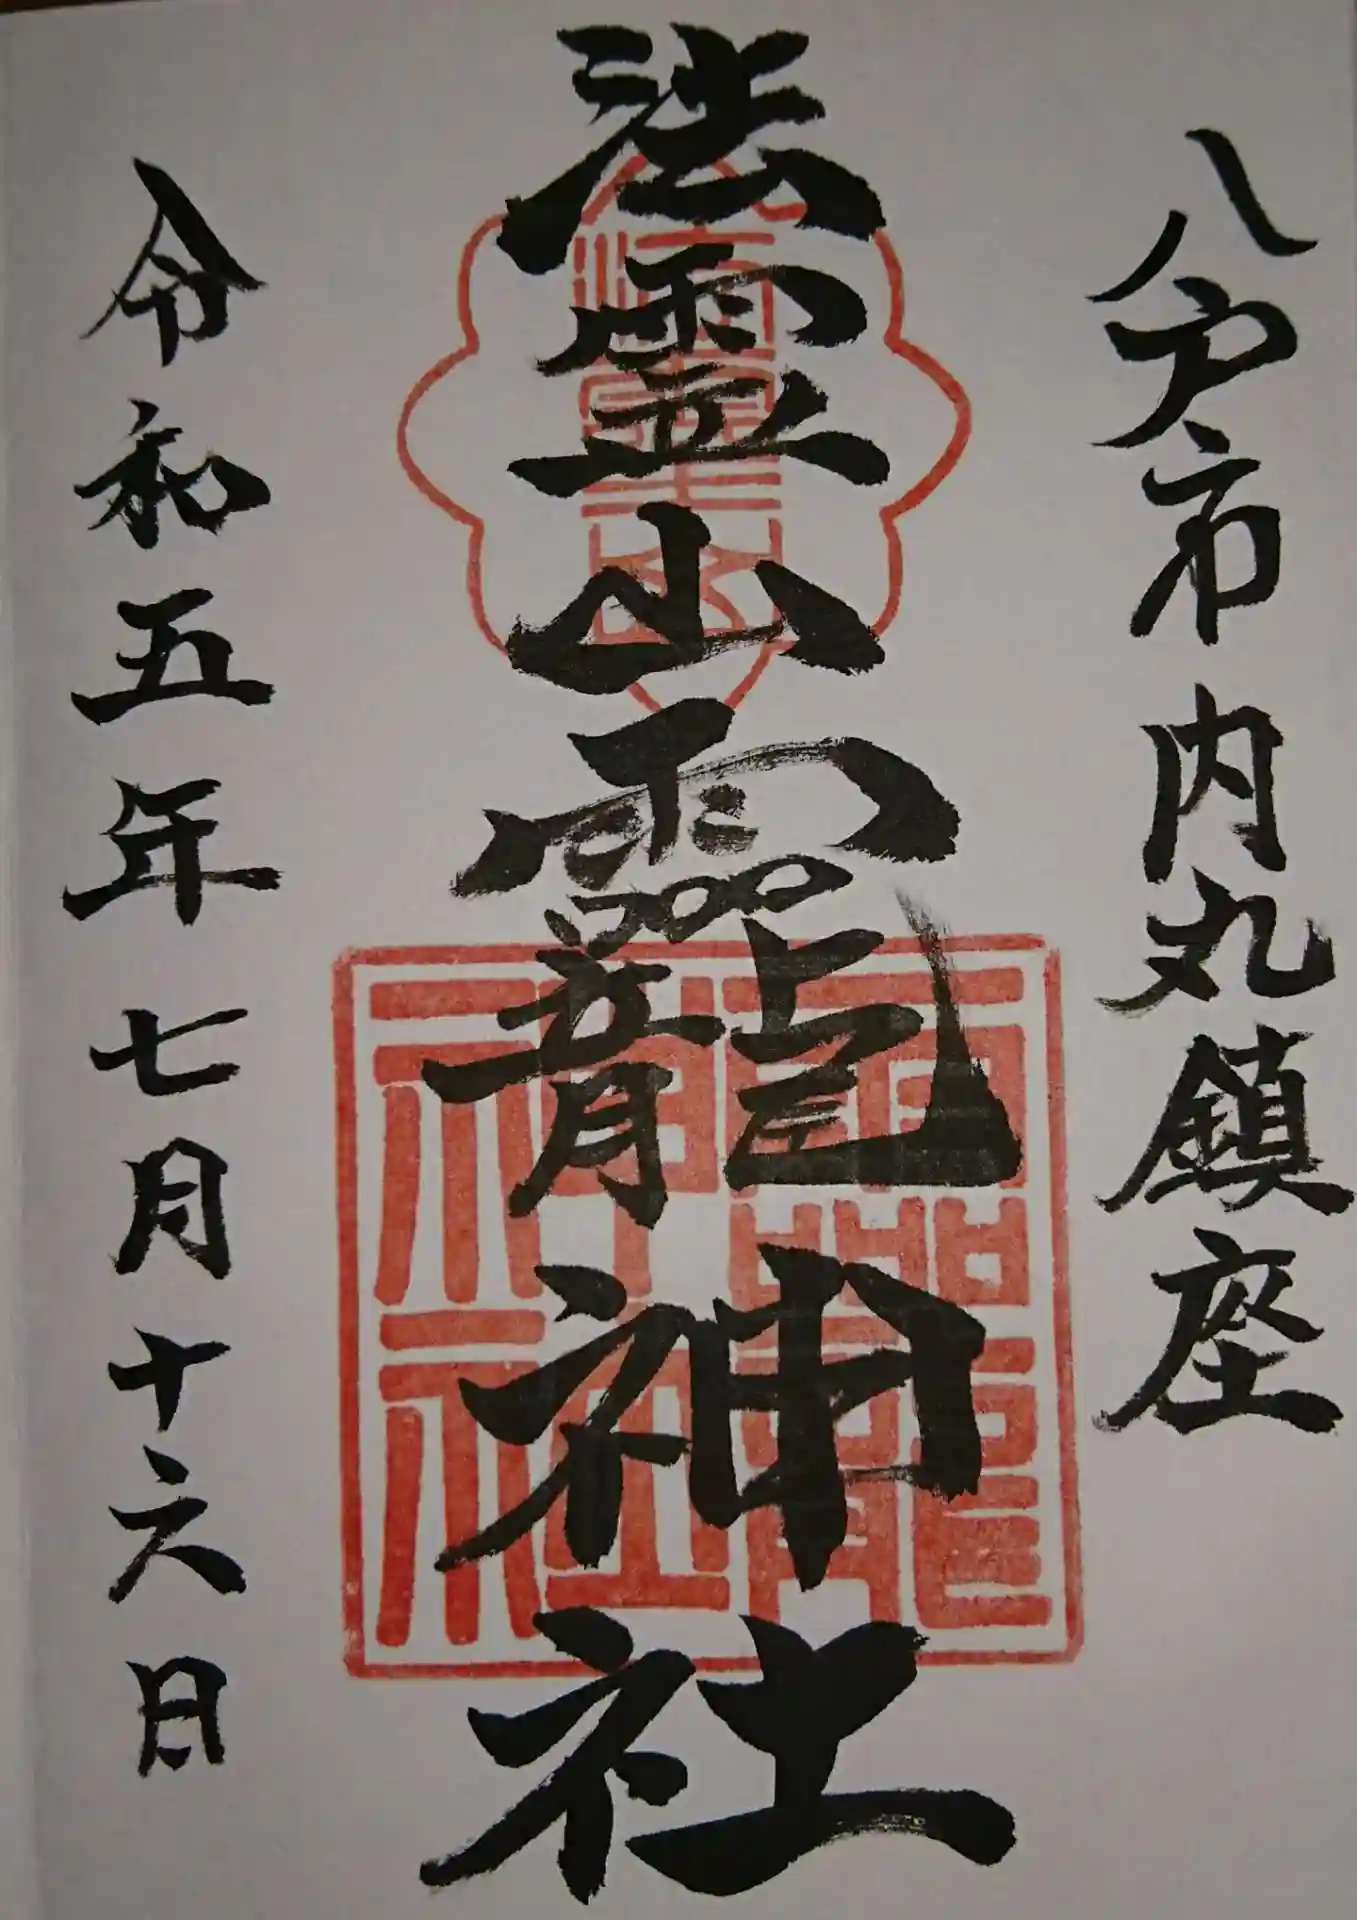 八戸市内丸鎮座
法霊山龗神社
令和五年七月十六日
法霊山
龗神社